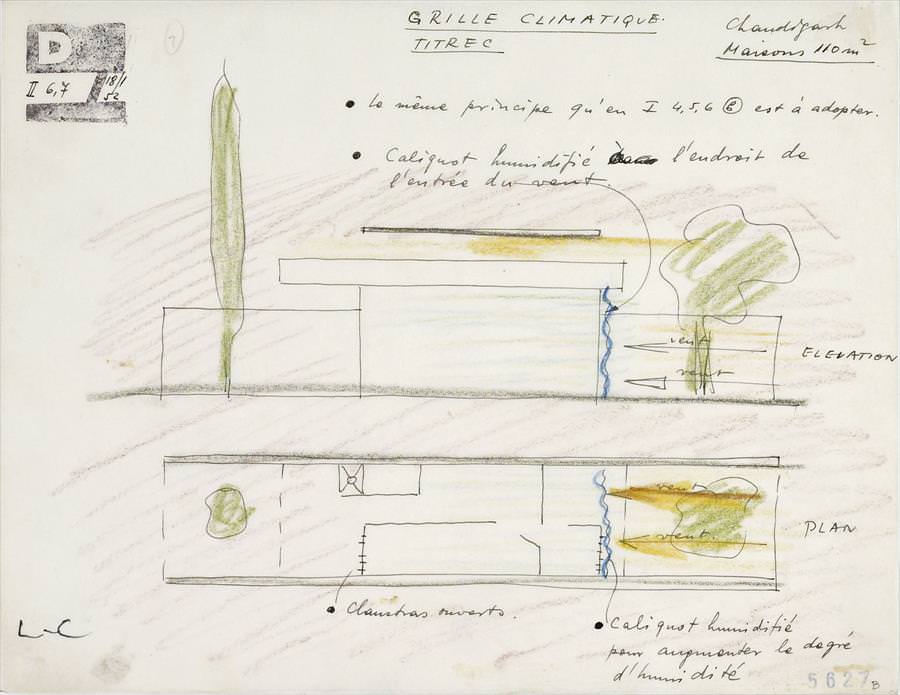 D
II 6,7
18/1
52
7
GRILLE CLIMATIQUE.
TITRE C
Chandigarh
Maisons 110 m²
• le même principe qu'en I 4,5,6 ⓑ est à adopter.
• Caliquot humidifié l'endroit de
l'entrée du vent.
vent
vent
ELEVATION
vent
vent.
PLAN
• Claustras ouverts.
• Caliquot humidifié
pour augmenter le degré
d'humidité
L-C
5627
B